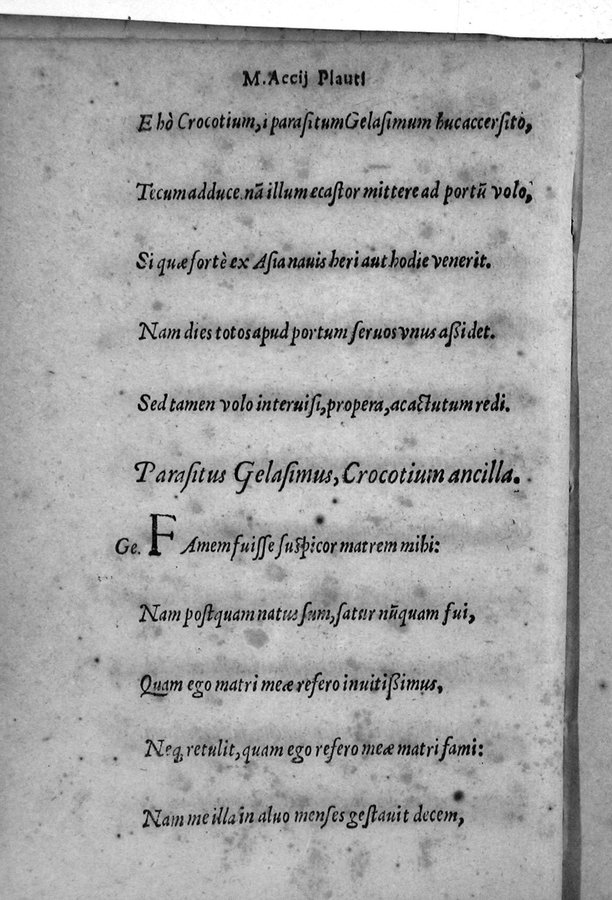 M.Accij Plauti
Ehò Crocotium, i parasitum Gelasimum huc accersitò,
Tecum adduce nã illum ecastor mittere ad portũ volo,
Si quæ fortè ex Asia nauis heri aut hodie venerit.
Nam dies totos apud portum seruos vnus aßidet.
Sed tamen volo interuisi, propera, ac actutum redi.
Parasitus Gelasimus, Crocotium ancilla.
Ge. FAmem fuisse suspicor matrem mihi:
Nam postquam natus sum, satur nũquam fui,
Quam ego matri meæ refero inuitißimus,
Neq, retulit, quam ego refero meæ matri fami:
Nam me illa in aluo menses gestauit decem,